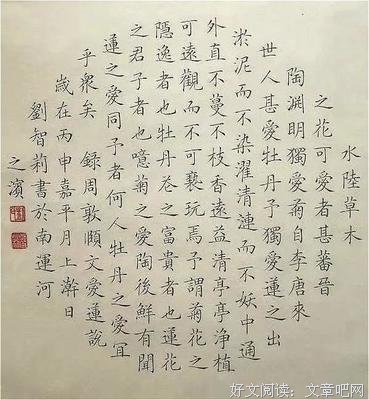 水陸草木
之花可愛者甚蕃晉
陶淵明獨愛菊自李唐來
世人甚愛牡丹予獨愛蓮之出
淤泥而不染濯清漣而不妖中通
外直不蔓不枝香遠益清亭亭淨植
可遠觀而不可褻玩焉予謂菊花之
隱逸者也牡丹花之富貴者也蓮花
之君子者也噫菊之愛陶後鮮有聞
蓮之愛同予者何人牡丹之愛宜
乎衆矣 録周敦頤文愛蓮說
歲在丙申嘉平月上澣日
劉智莉書於南運河
之濱
好文阅读：文章吧网